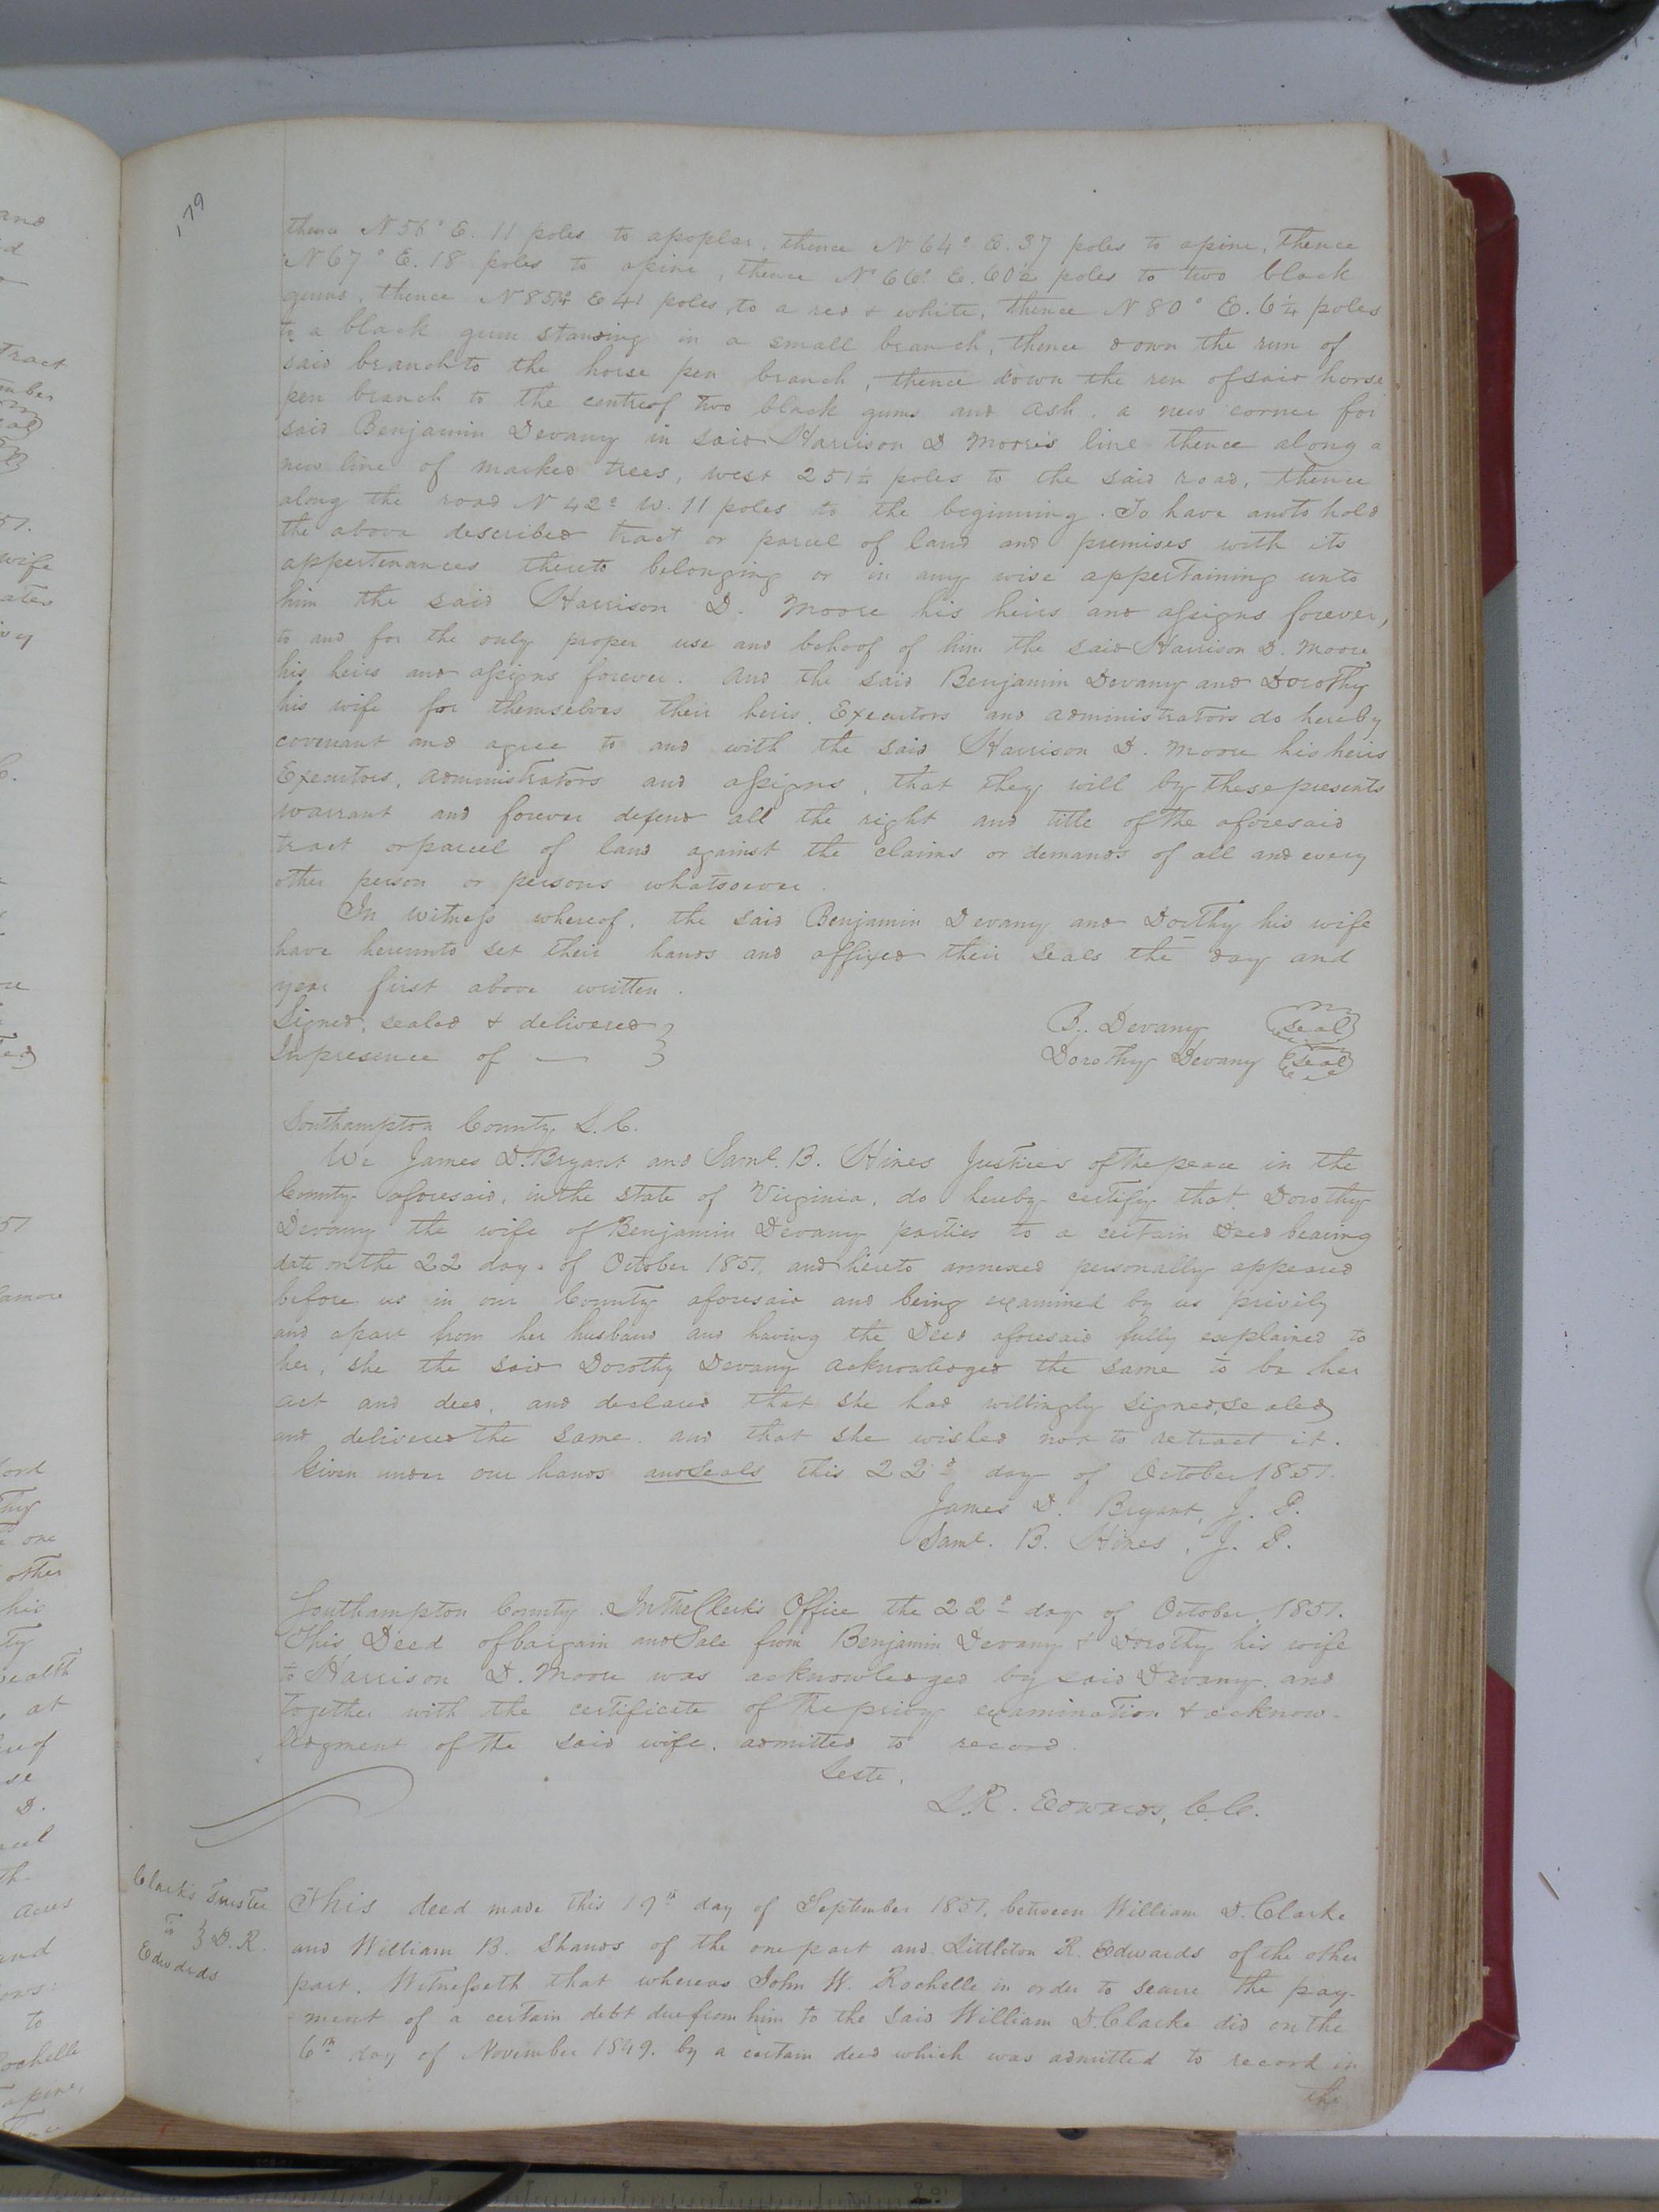 179
thence N 56° E. 11 poles to apoplar, thence N 64° E. 37 poles to apine, thence
N 67° E. 18 poles to apine, thence N 66° E. 60½ poles to two black
gums, thence N 85¼ E 41 poles, to a red & white, thence N 80° E. 6¼ poles
to a black gum standing in a small branch, thence down the run of
said branch to the horse pen branch, thence down the run of said horse
pen branch to the centre of two black gums and ash, a new corner for
said Benjamin Devany in said Harrison D Moore's line thence along a
new line of marked trees, west 251½ poles to the said road, thence
along the road N 42° W. 11 poles to the beginning. To have and to hold
the above described tract or parcel of land and premises with its
appertenances thereto belonging or in any wise appertaining unto
him the said Harrison D. Moore his heirs and assigns forever,
to and for the only proper use and behoof of him the said Harrison D. Moore
his heirs and assigns forever. And the said Benjamin Devany and Dorothy
his wife for themselves their heirs, Executors and administrators do hereby
covenant and agree to and with the said Harrison D. Moore his heirs
Executors, administrators and assigns, that they will by these presents
warrant and forever defend all the right and title of the aforesaid
tract or parcel of land against the claims or demands of all and every
other person or persons whatsoever.
In witness whereof, the said Benjamin Devany and Dorthy his wife
have hereunto set their hands and affixed their seals the day and
year first above written.
Signed, sealed & delivered } B.. Devany (Seal)
In presence of — } Dorothy Devany (Seal)
Southampton County S.C.
We James D. Bryant and Saml. B. Hines Justices of the peace in the
County aforesaid, in the State of Virginia, do hereby certify that Dorothy
Devany the wife of Benjamin Devany parties to a certain Deed bearing
date on the 22 day of October 1851, and hereto annexed personally appeared
before us in our County aforesaid and being examined by us privily
and apart from her husband and having the Deed aforesaid fully explained to
her, she the said Dorothy Devany acknowledged the same to be her
act and deed, and declared that she had willingly signed, sealed
and delivered the same, and that she wished not to retract it.
Given under our hands and Seals this 22d day of October 1851.
James D. Bryant, J. P.
Saml. B. Hines, J. P.
Southampton County. In the Clerk's Office the 22d day of October, 1851.
This Deed of bargain and Sale from Benjamin Devany & Dorothy his wife
to Harrison D. Moore was acknowledged by said Devany, and
together with the certificate of the privy examination & acknow-
ledgment of the said wife, admitted to record.
Teste,
L.R. Edwards, C.C.
Clark's Trustee
to } D. R.
Edwards
This deed made this 19th day of September 1851, between William D. Clarke
and William B. Shands of the one part and Littleton R. Edwards of the other
part. Witnesseth that whereas John W. Rochelle in order to secure the pay-
ment of a certain debt due from him to the said William D. Clarke did on the
6th day of November 1849, by a certain deed which was admitted to record in
the